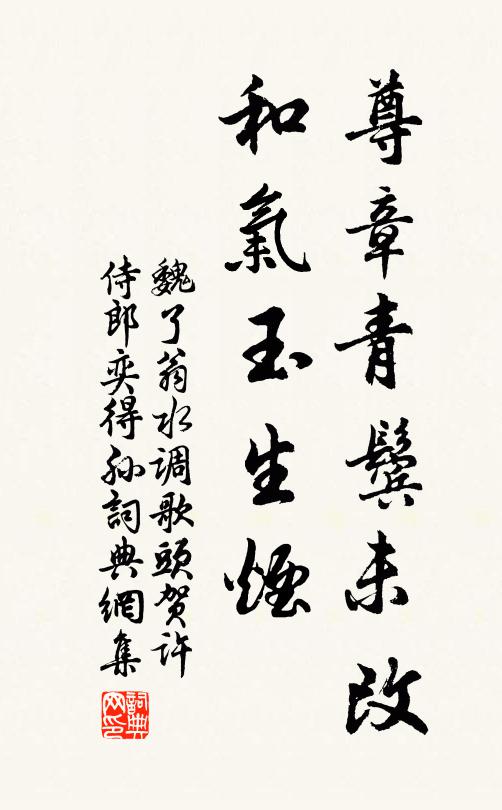 尊章青鬓未改
和氣玉生煙
魏了翁水调歌頭贺许
侍郎奕得孙詞典網集
詞典网印